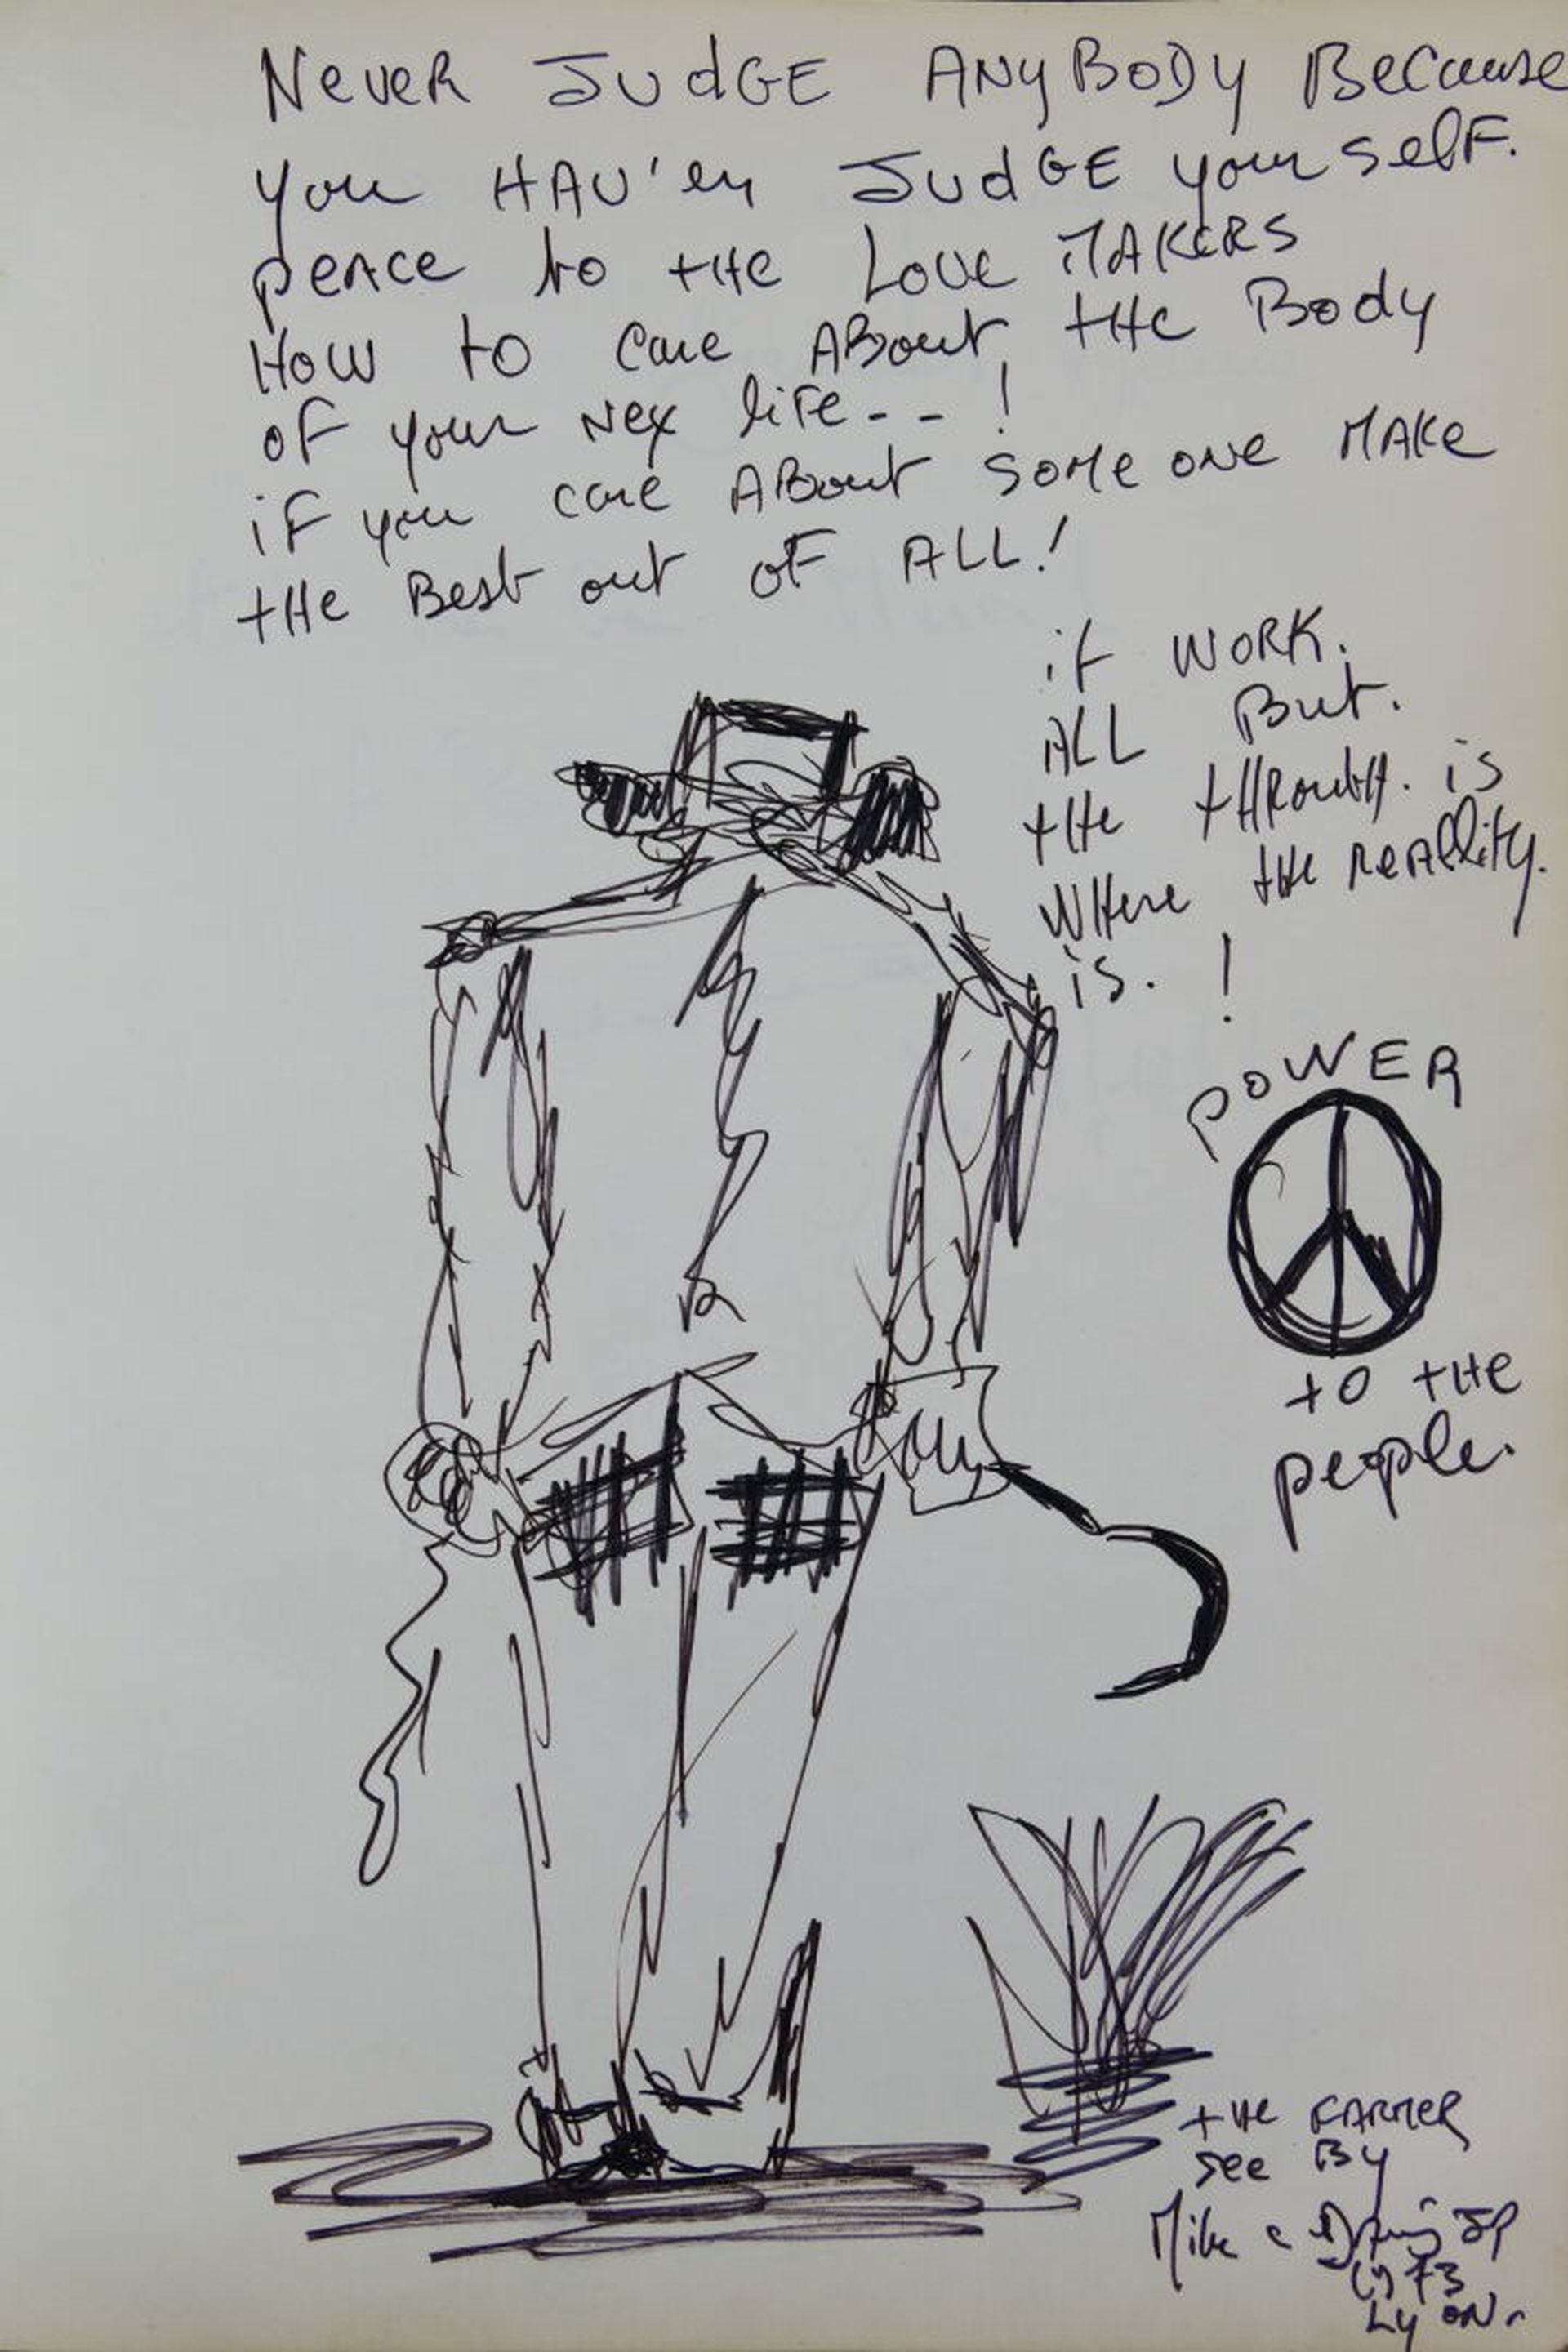 Never JUdGE ANyBODy BeCause
you HAV'en JUdGE yourself.
peace to tHe Love MAKERS
How to Care ABout tHe Body
of your Nex life - - !
if you care ABout someone MAKe
tHe Best out of ALL!
it WORK.
ALL But.
tHe tHRoutH. is
WHere tHe reallity.
is. !
POWER
to tHe
people.
tHe FARMER
see By
Mike
1973
LyON.